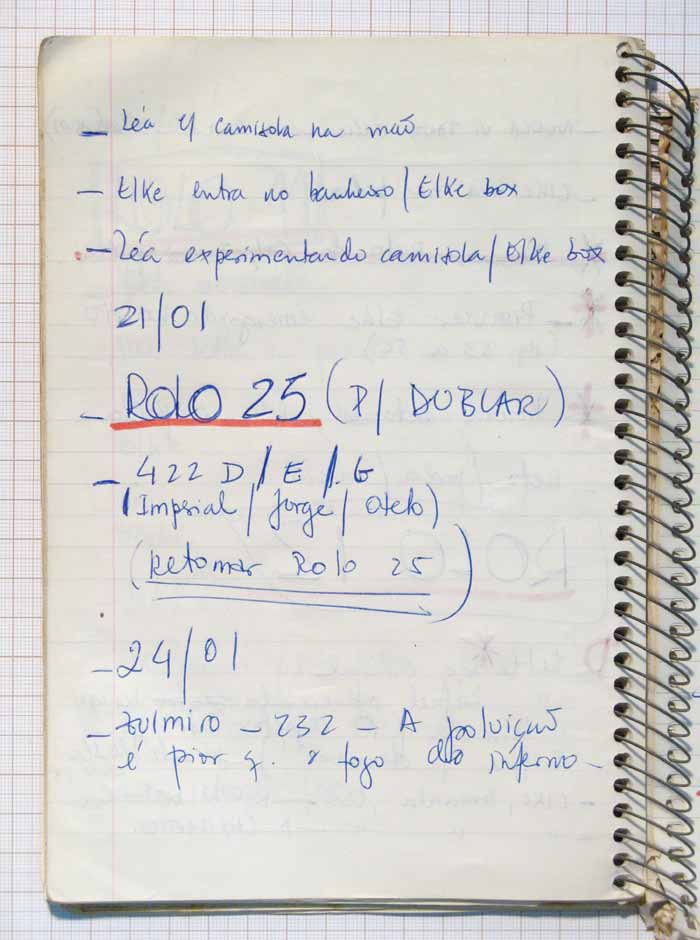 – Léa c/ camisola na mão
– Elke entra no banheiro / Elke box
– Léa experimentando camisola / Elke box
21/01
– Rolo 25 (P/ DUBLAR)
– 422 D / E / G
(Imperial / Jorge / Otelo)
(Retomar Rolo 25)
– 24/01
– Zulmiro – 232 – A poluição
é pior q. o fogo do inferno –